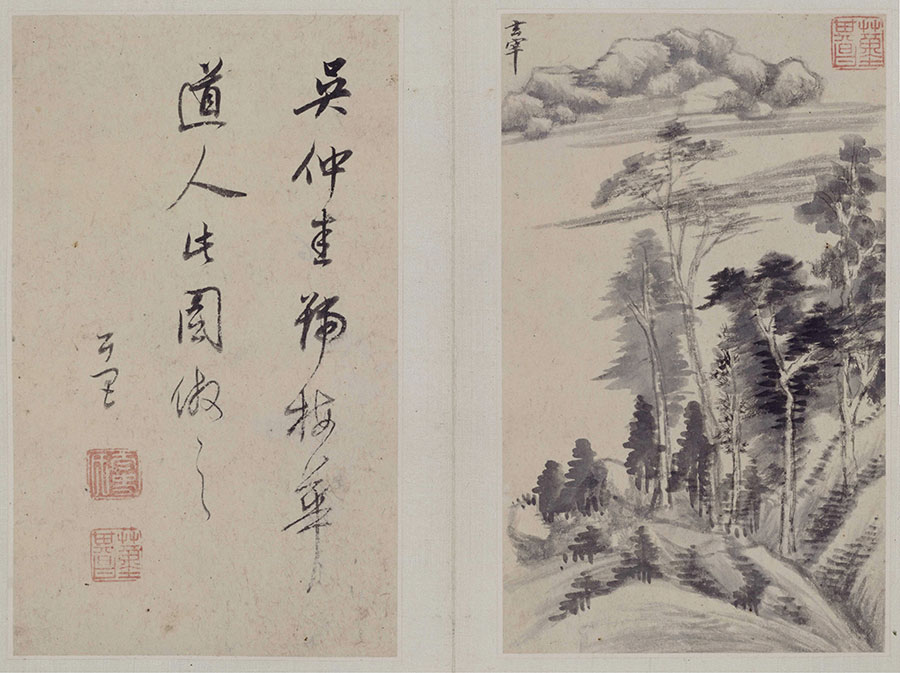 董其昌
玄宰
吳仲圭號梅華
道人此圖倣之
玄宰
董其昌